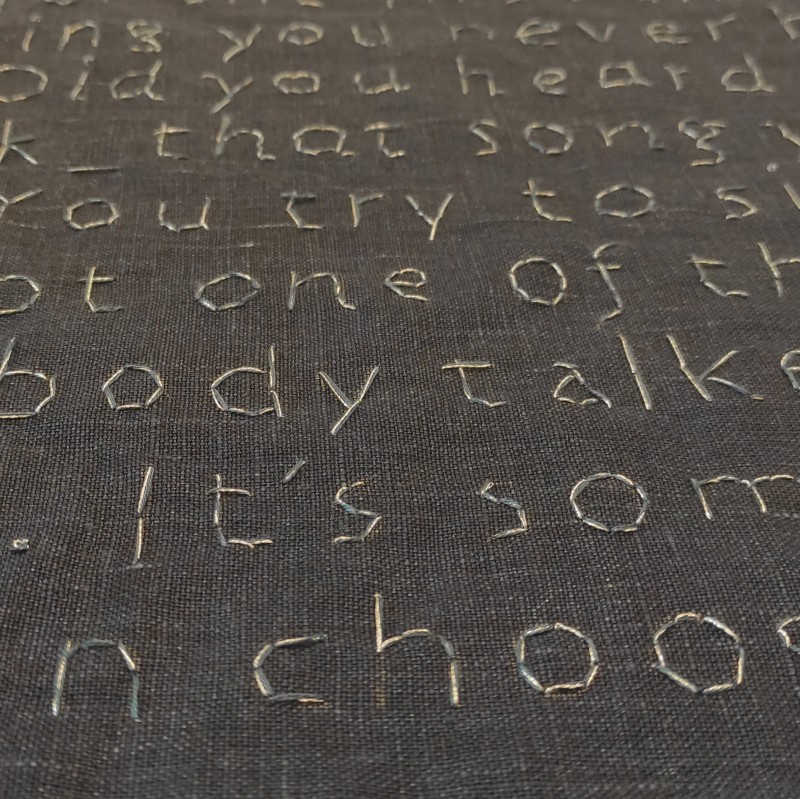 ing you never h
Did you heard d
k_ that song y
You try to sl
ot one of th
body talke
. It's som
n choos